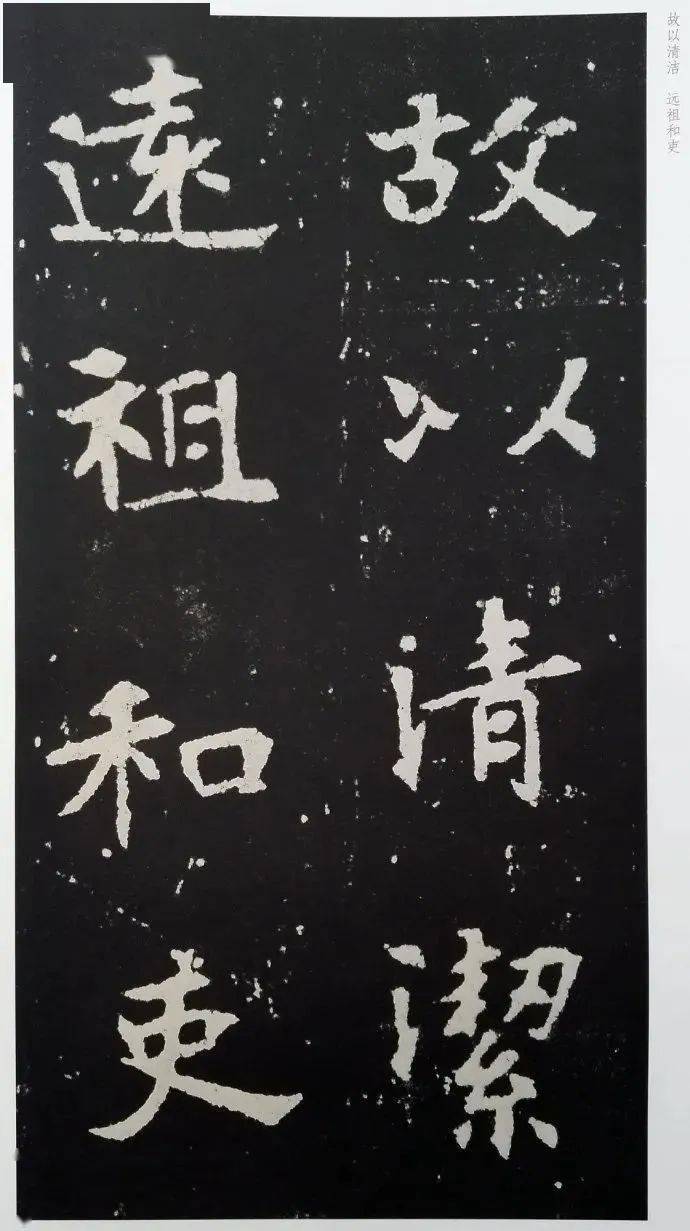 故以清洁　远祖和吏
故以清潔
遠祖和吏